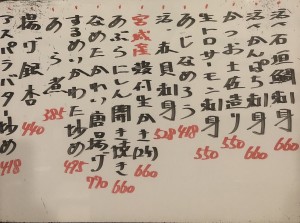 活〆石垣鯛刺身 660
活〆かんぱち刺身 660
かつお土佐造り 550
生トロサーモン刺身 550
あじなめろう 418
活赤貝刺身 528
宮城産 殻付生かき(2ヶ) 660
あぶらにしん開き焼き 660
なめたかれい唐揚げ 770
するめいかわた炒め 495
あら煮 385
揚げ銀杏 440
アスパラバター炒め 418